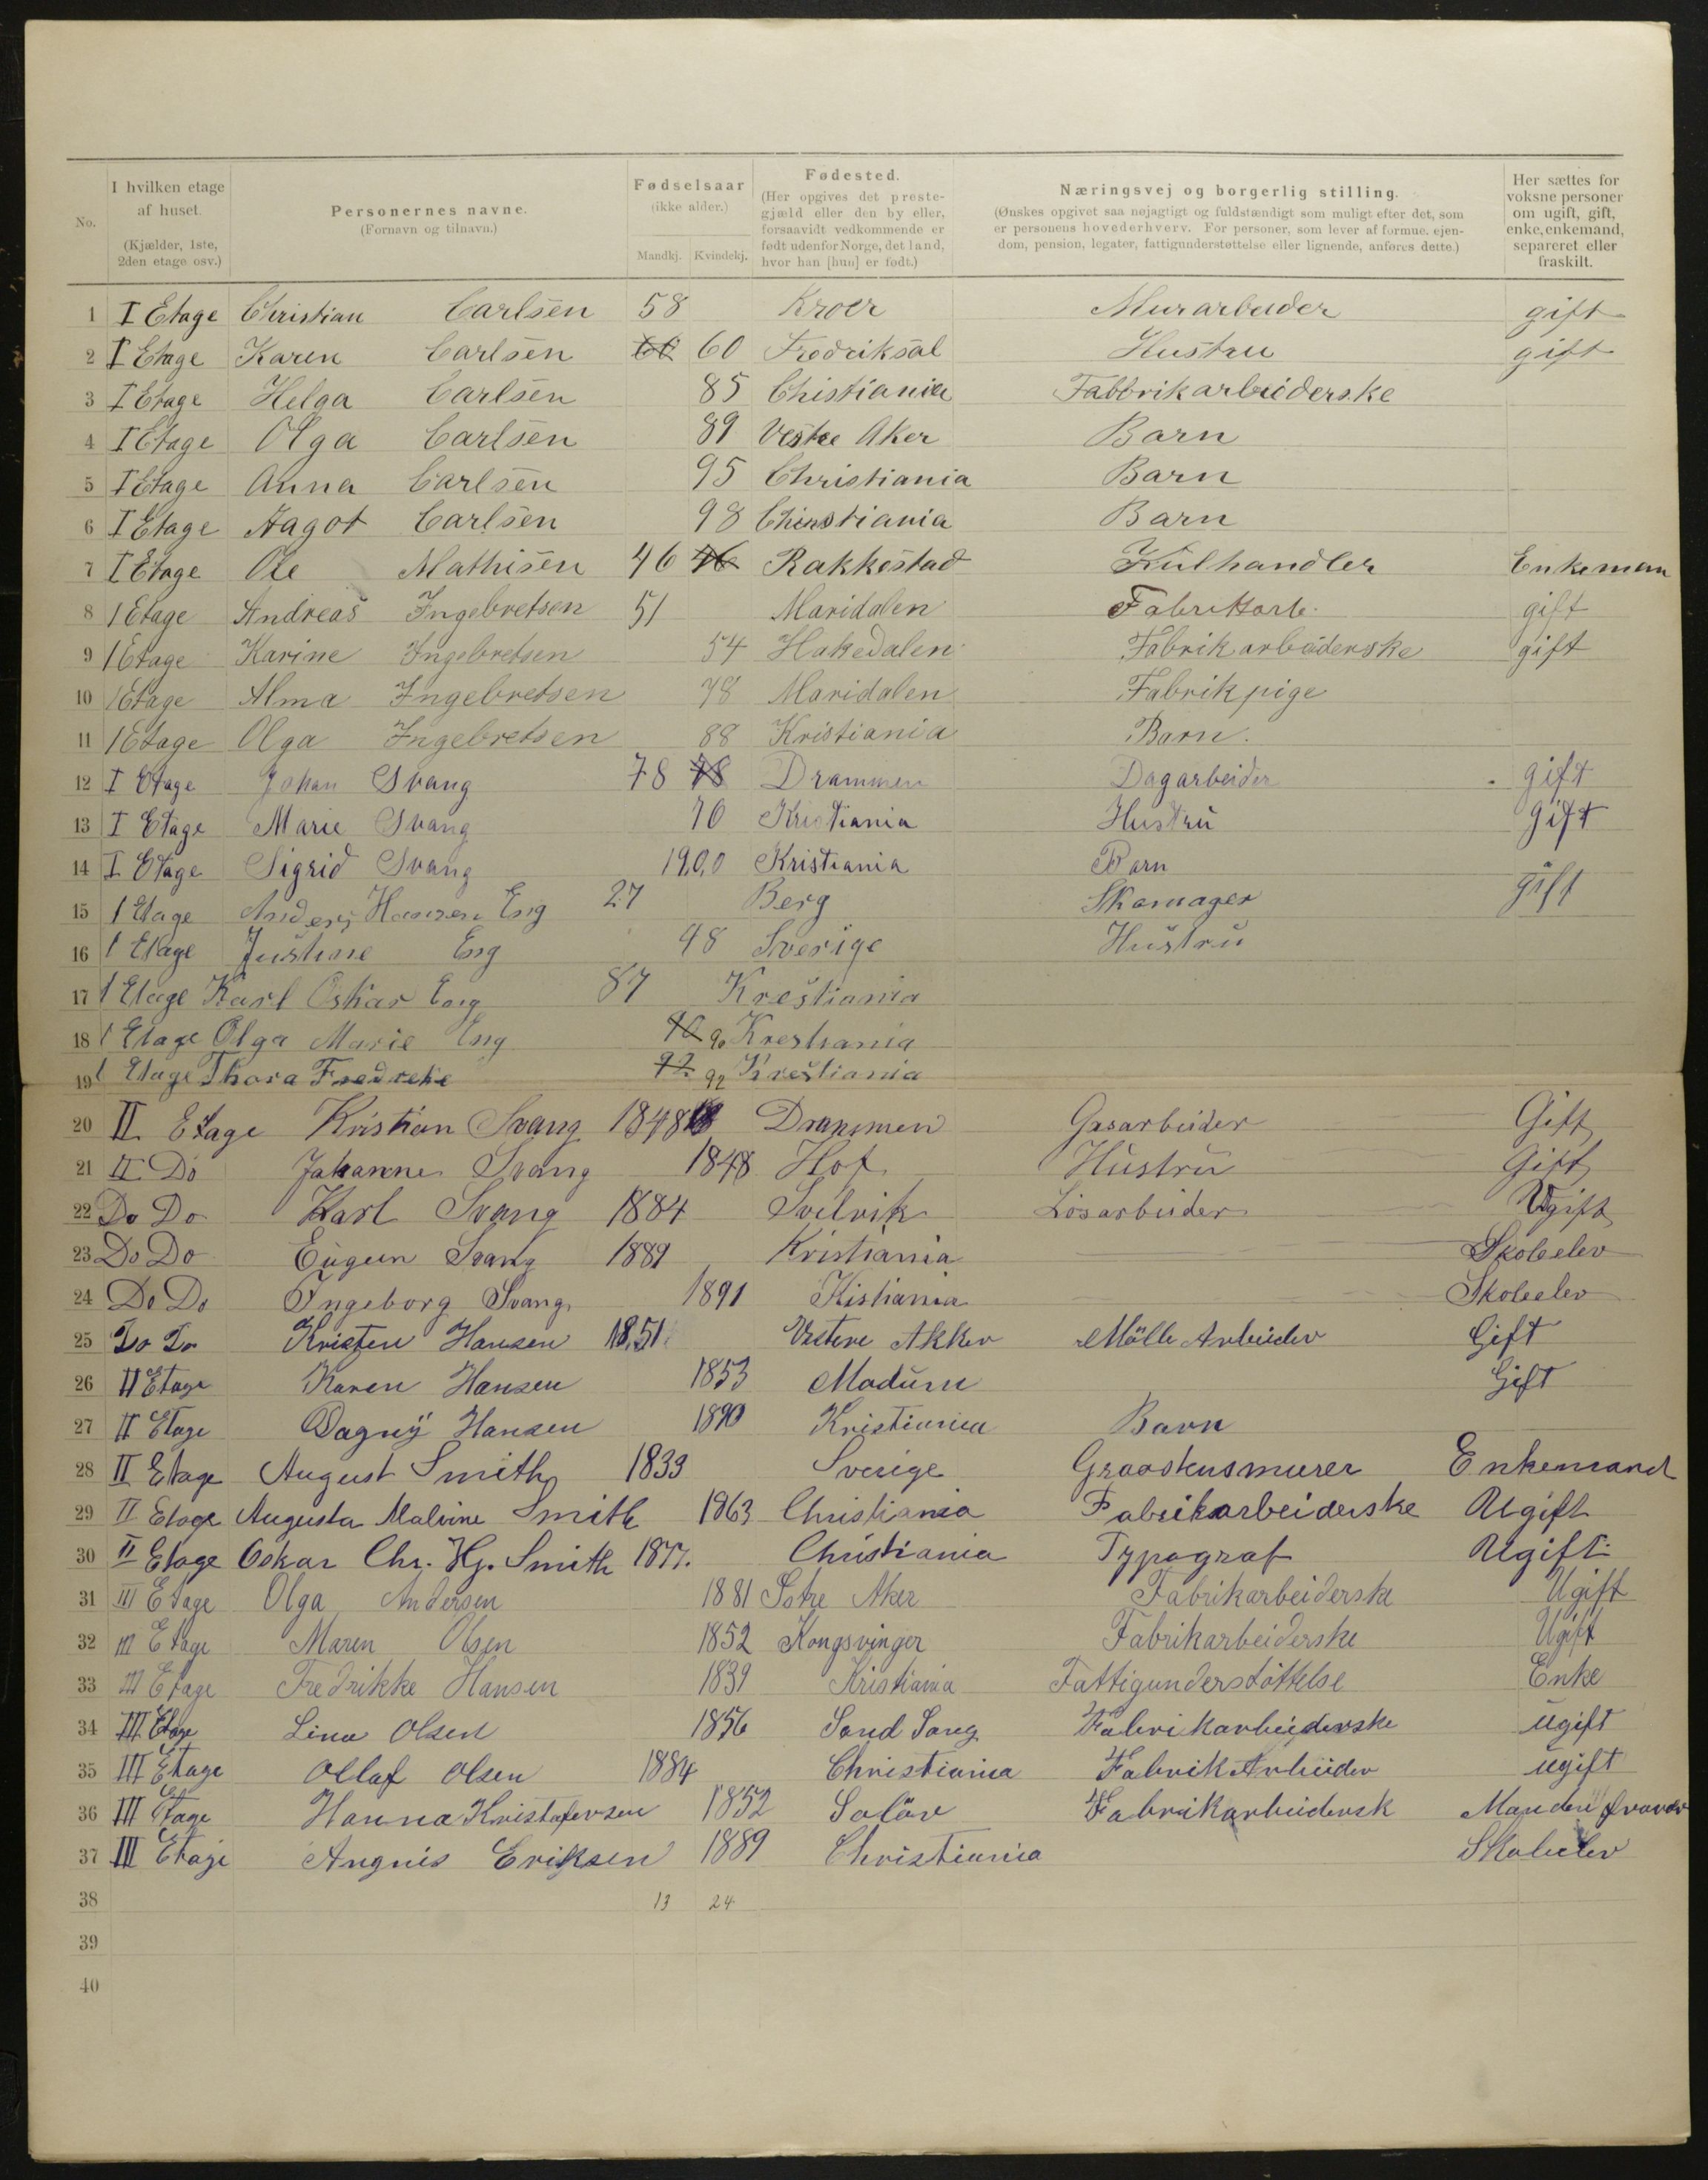 No. I hvilken etage af huset. (Kjælder, 1ste, 2den etage osv.) Personernes navne. (Fornavn og tilnavn.) Fødselsaar (ikke alder.) Mandkj. Kvindekj. Fødested. (Her opgives det prestegjæld eller den by eller, forsaavidt vedkommende er født udenfor Norge, det land, hvor han [hun] er født.) Næringsvej og borgerlig stilling. (Ønskes opgivet saa nøjagtigt og fuldstændigt som muligt efter det, som er personens hovederhverv. For personer, som lever af formue, ejendom, pension, legater, fattigunderstøttelse eller lignende, anføres dette.) Her sættes for voksne personer om ugift, gift, enke, enkemand, separeret eller fraskilt.
1 I Etage Christian Carlsen 58 Kroer Murarbeider gift
2 I Etage Karen Carlsen 60 Fredriksal Hustru gift
3 I Etage Helga Carlsen 85 Christiania Fabbrikarbeiderske
4 I Etage Olga Carlsen 89 Vestre Aker Barn
5 I Etage Anna Carlsen 95 Christiania Barn
6 I Etage Aagot Carlsen 98 Christiania Barn
7 I Etage Ole Mathisen 46 46 Rakkestad Kulhandler Enkeman
8 1 Etage Andreas Ingebretsen 51 Maridalen Fabrikarb. gift
9 1 Etage Karine Ingebretsen 54 Hakedalen Fabrikarbeiderske gift
10 1 Etage Alma Ingebretsen 78 Maridalen Fabrikpige
11 1 Etage Olga Ingebretsen 88 Kristiania Barn.
12 I Etage Johan Svang 78 78 Drammen Dagarbeider gift
13 I Etage Marie Svang 76 Kristiania Hustru gift
14 I Etage Sigrid Svang 1900 Kristiania Barn
15 1 Etage Anders Hansen Eng 27 Berg Skomager gift
16 1 Etage Justine Eng 48 Sverige Hustru
17 1 Etage Karl Oskar Eng 87 Krestiania
18 1 Etage Olga Marie Eng 90 90 Krestiania
19 1 Etage Thora Fredreke 92 92 Krestiania
20 II Etage Kristian Svang 1848 Drammen Gasarbeider Gift
21 II Do Johanne Svang 1848 Hof Hustru Gift
22 Do Do Karl Svang 1884 Svelvik Løsarbeider Ugift
23 Do Do Eugen Svang 1889 Kristiania Skoleelev
24 Do Do Ingeborg Svang 1891 Kistiania Skoleelev
25 Do Do Kristen Hansen 1851 Vestere Akker Mölle Arbeider Gift
26 II Etage Karen Hansen 1853 Modum Gift
27 II Etage Dagny Hansen 1890 Kristiania Barn
28 II Etage August Smith 1833 Sverige Graastensmurer Enkemand
29 II Etage Augusta Malvine Smith 1863 Christiania Fabrikarbeiderske Ugift
30 II Etage Oskar Chr. Hj. Smith 1877. Christiania Typograf Ugift
31 III Etage Olga Andersen 1881 Østre Aker Fabrikarbeiderske Ugift
32 III Etage Maren Olsen 1852 Kongsvinger Fabrikarbeiderske Ugift
33 III Etage Fredrikke Hansen 1839 Kristiania Fattigunderstøttelse Enke
34 III Etage Lina Olsen 1856 Sand Fabrikarbeiderske ugift
35 III Etage Ollaf Olsen 1884 Christiania Fabrik Arbeider ugift
36 III Etage Hanna Kristofersen 1852 Soløer Fabrikarbeidersk Manden
37 III Etage Angnis Eriksen 1889 Christiania Skolelev
38 13 24
39
40